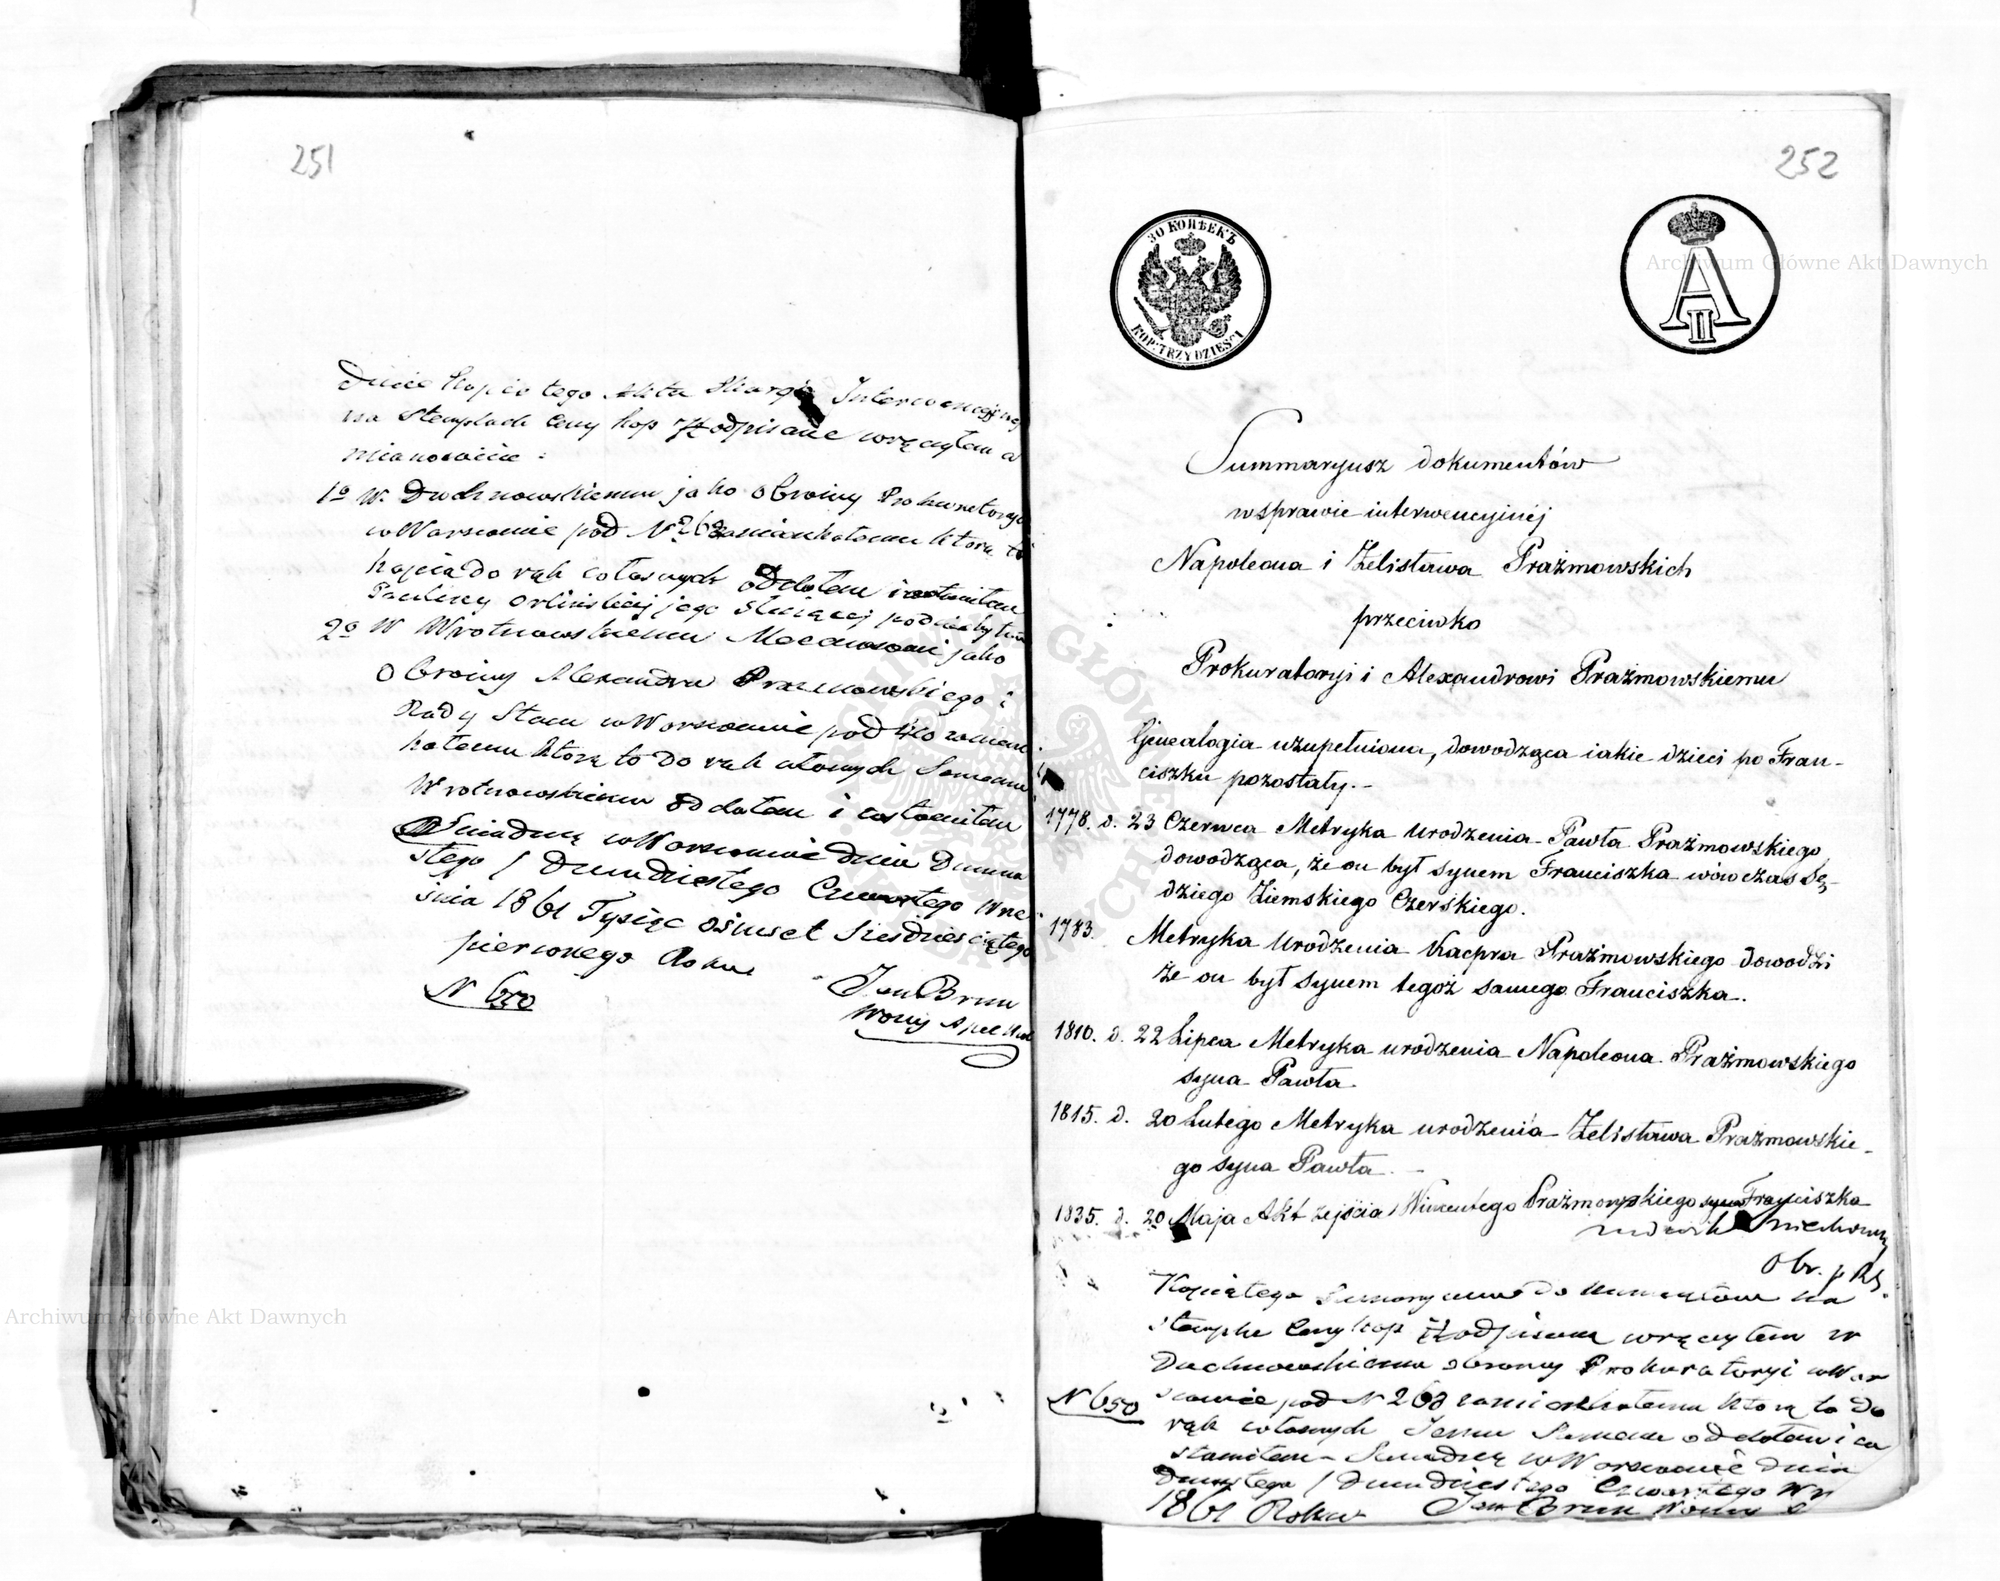 251
Dwie kopie tego Aktu Skargi Interwencyjnej
na stemplach ceny kop 7½ odpisane wręczyłem a
mianowicie:
1o W. Duchnowskiemu jako obrońcy Prokuratoryi
w Warszawie pod No 262 zamieszkałemu którą to
kopią do rąk własnych oddałem i zostawiłem
Pauliny Orlińskiej jego służącej
2o W Wrotnowskiemu Mecenasowi jako
obrońcy Alexandra Prażmowskiego i
Rady Stanu w Warszawie pod 410 zamiesz
kałemu którą to do rąk własnych Samemu
Wrotnowskiemu oddałem i zostawiłem
Świadczę w Warszawie dnia Dwuna
stego / Dwudziestego Czwartego Wrze
śnia 1861 Tysiąc ośmset sześdziesiątego
pierwszego Roku
N 650
Jan Brun
Woźny Apel
252
30 КОПѢЕКЪ
KOP: TRZYDZIEŚCI
A II
Summaryusz dokumentów
w sprawie interwencyjnéj
Napoleona i Żelisława Prażmowskich
przeciwko
Prokuratoryi i Alexandrowi Prażmowskiemu
Genealogia uzupełniona, dowodząca iakie dzieci po Fran-
ciszku pozostały.-
1778. d. 23 Czerwca Metryka urodzenia Pawła Prażmowskiego
dowodząca, że on był synem Franciszka wówczas Sę-
dziego Ziemskiego Czerskiego.
1783. Metryka Urodzenia Kacpra Prażmowskiego dowodzi
że on był synem tegoż samego Franciszka.
1810. d. 22 Lipca Metryka urodzenia Napoleona Prażmowskiego
syna Pawła
1815. d. 20 Lutego Metryka urodzenia Żelisława Prażmowskie-
go syna Pawła
1835. d. 20 Maja Akt zejścia Wincentego Prażmowskiego syna Franciszka
Obr. p Rz.
Kopią tego Sumaryusza dokumentów na
stemplu ceny kop 7½ odpisaną wręczyłem W
Duchnowskiemu obrońcy Prokuratoryi w War
szawie pod N 262 zamieszkałemu którą to do
N 650
rąk własnych Jemu Samemu oddałem i zo
stawiłem Świadczę w Warszawie dnia
Dwunastego / Dwudziestego Czwartego Wrz
1861 Roku Jan Brun Woźny
Archiwum Główne Akt Dawnych
Archiwum Główne Akt Dawnych